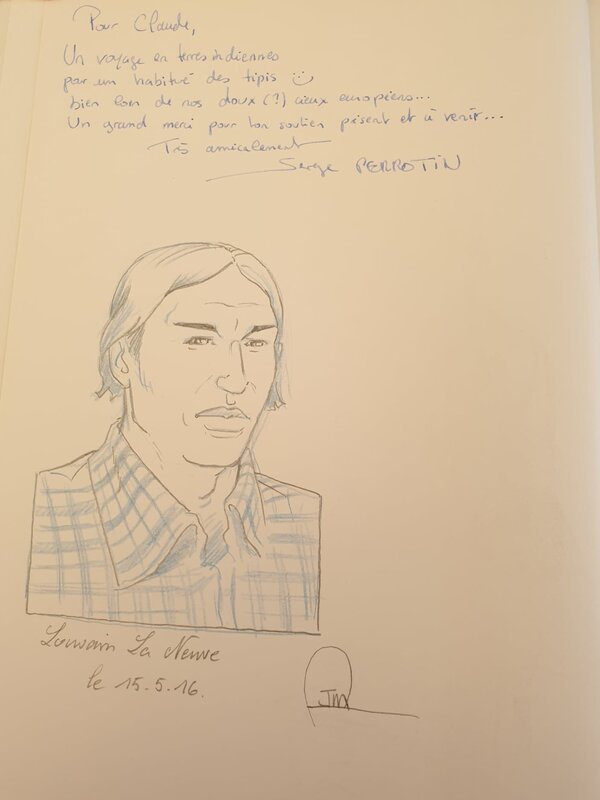 Pour Claude,
Un voyage en terres indiennes
par un habitué des tipis
bien loin de nos doux (?) cieux européens...
Un grand merci pour ton soutien présent et à venir...
Très amicalement
Serge PERROTIN
Louvain La Neuve
le 15.5.16.
JM